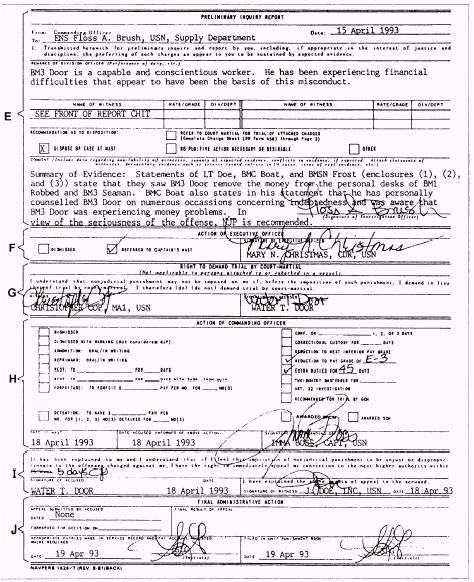 PRELIMINARY INQUIRY REPORT
From: Commanding Officer Date: 15 April 1993
To: ENS Floss A. Brush, USN, Supply Department
1. Transmitted herewith for preliminary inquiry and report by you, including, if appropriate in the interest of justice and
discipline, the preferring of such charges as appear to you to be sustained by expected evidence.
REMARKS OF DIVISION OFFICER (Performance of duty, etc.)
BM3 Door is a capable and conscientious worker. He has been experiencing financial
difficulties that appear to have been the basis of this misconduct.
NAME OF WITNESS RATE/GRADE DIV/DEPT NAME OF WITNESS RATE/GRADE DIV/DEPT
E
SEE FRONT OF REPORT CHIT
RECOMMENDATION AS TO DISPOSITION: REFER TO COURT MARTIAL FOR TRIAL OF ATTACHED CHARGES
(Complete Charge Sheet (DD Form 458) through Page 2)
X DISPOSE OF CASE AT MAST NO PUNITIVE ACTION NECESSARY OR DESIRABLE OTHER
Summary of Evidence: Statements of LT Doe, BMC Boat, and BMSN Frost (enclosures (1), (2),
and (3)) state that they saw BM3 Door remove the money from the personal desks of BM1
Robbed and BM3 Seaman. BMC Boat also states in his statement that he has personally
counselled BM3 Door on numerous occassions concerning indebtedness and was aware that
BM3 Door was experiencing money problems. In Floss A Brush
view of the seriousness of the offense, NJP is recommended.
ACTION OF EXECUTIVE OFFICER
F
DISMISSED REFERRED TO CAPTAIN'S MAST
Mary N. Christmas
MARY N. CHRISTMAS, CDR, USN
RIGHT TO DEMAND TRIAL BY COURT-MARTIAL
(Not applicable to persons attached to or embarked in a vessel)
I understand that nonjudicial punishment may not be imposed on me if, before the imposition of such punishment, I demand in lieu
thereof trial by court-martial. I therefore (do) (do not) demand trial by court-martial.
G
Water Door
MA1, USN WATER T. DOOR
ACTION OF COMMANDING OFFICER
DISMISSED CONF. ON 1, 2, OR 3 DAYS
DISMISSED WITH WARNING (Not considered NJP) CORRECTIONAL CUSTODY FOR DAYS
ADMONITION: ORAL/IN WRITING REDUCTION TO NEXT INFERIOR PAY GRADE
REPRIMAND: ORAL/IN WRITING REDUCTION TO PAY GRADE OF E-3
H
REST. TO FOR DAYS EXTRA DUTIES FOR 45 DAYS
REST. TO FOR DAYS WITH SUSP. FROM DUTY PUNISHMENT SUSPENDED FOR
FORFEITURE: TO FORFEIT $ PAY PER MO. FOR MO(S) ART. 32 INVESTIGATION
RECOMMENDED FOR TRIAL BY GCM
DETENTION: TO HAVE $ PAY PER AWARDED SPCM AWARDED SCM
MO. FOR (1, 2, 3) MO(S) DETAINED FOR MO(S)
DATE OF MAST DATE ACCUSED INFORMED OF ABOVE ACTION
18 April 1993 18 April 1993 IMMA BOSE, CAPT, USN
It has been explained to me and I understand that if I feel this imposition of nonjudicial punishment to be unjust or dispropor-
tionate to the offenses charged against me, I have the right to immediately appeal my conviction to the next higher authority within
I
5 days
SIGNATURE OF ACCUSED I have explained the above rights of appeal to the accused.
WATER T. DOOR 18 April 1993 SIGNATURE OF WITNESS LNC, USN 18 Apr 93
FINAL ADMINISTRATIVE ACTION
APPEAL SUBMITTED BY ACCUSED FINAL RESULT OF APPEAL:
None
DATED
FORWARDED FOR DECISION ON
J
APPROPRIATE ENTRIES MADE IN SERVICE RECORD AND PAY ACCOUNT ADJUSTED FILED IN UNIT PUNISHMENT BOOK
WHERE REQUIRED
DATE: 19 Apr 93 (Initials) DATE: 19 Apr 93 (Initials)
NAVPERS 1626/7 (REV. 8-81)(BACK)